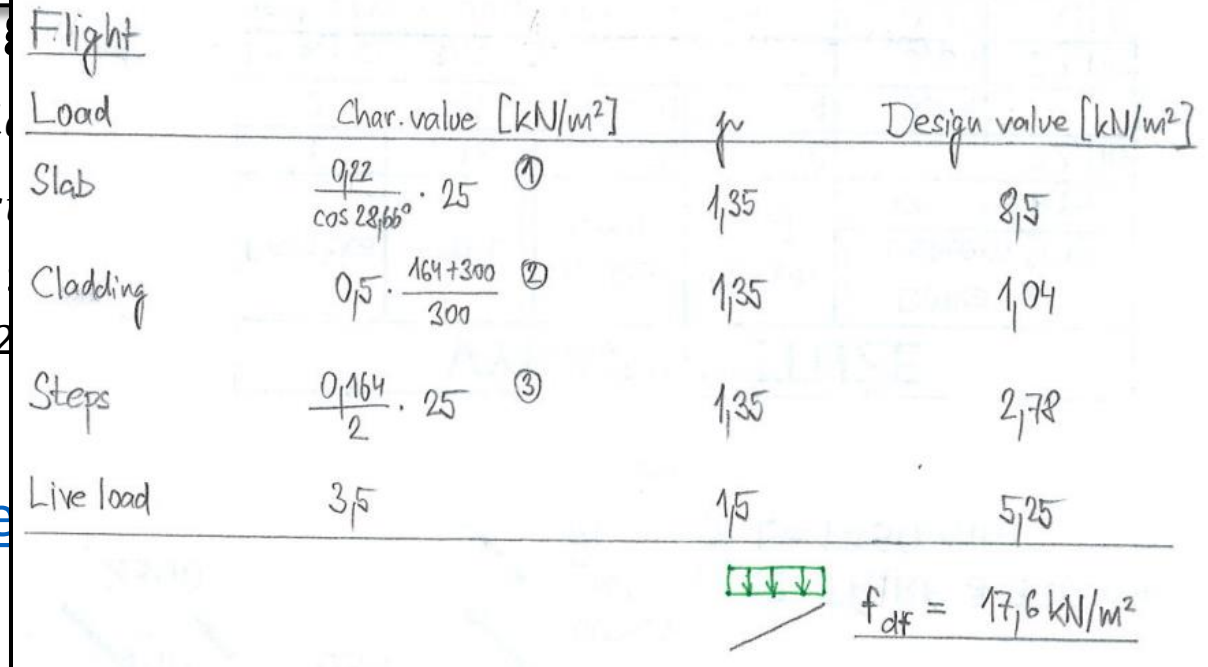 Flight
Load Char. value [kN/m²] γ Design value [kN/m²]
Slab 0,22 / cos 28,66° · 25 ① 1,35 8,5
Cladding 0,5 · 164+300 / 300 ② 1,35 1,04
Steps 0,164 / 2 · 25 ③ 1,35 2,78
Live load 3,5 1,5 5,25
f_df = 17,6 kN/m²